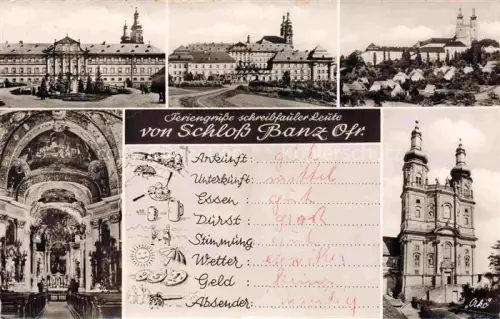 Feriengrüße schreibfauler Leute
von Schloß Banz Ofr.
Ankunft: gut
Unterkunft: mittel
Essen: gut
Durst: groß
Stimmung:
Wetter:
Geld: keins
Absender: